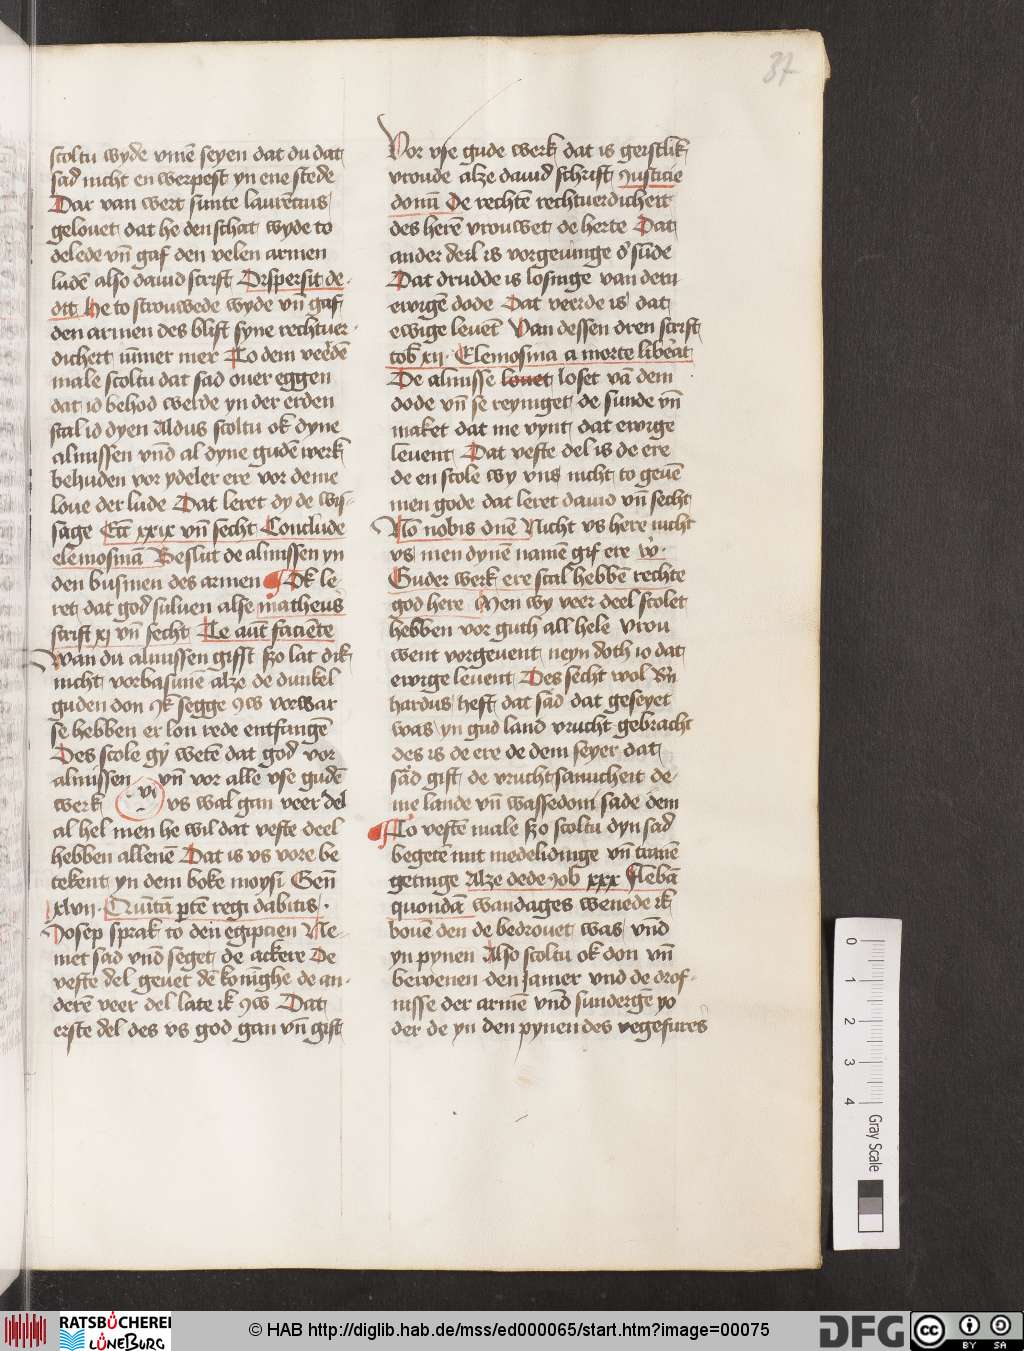 37
scoltu wyde vmē seyen dat du dat
sad nicht en werpest yn ene stede
Dar van wert sunte laurencius
gelouet dat he den schat wyde to
delede vn̄ gaf den velen armen
ludē also dauid scrift Dispersit de
dit he to strouwede wyde vn̄ gaf
den armen des blift syne rechtuer
dicheit ūmer mer To dem veerdē
male scoltu dat sad ouer eggen
dat id behod werde yn der erden
stal id dyen Aldus scoltu ok dyne
almissen vnd al dyne gudē werk
behuden vor ydeler ere vor deme
loue der lude Dat leret dy de wis
sage Ecc xxix vn̄ secht Conclude
elemosinā Beslut de almissen yn
den busmen des armen Ok le
ret dat god suluen alse matheus
scrift xi vn̄ secht Te aut faciēte
Wan du almissen gifst szo lat dik
nicht vorbasune alze de dunkel
guden don Ik segge iw vorwar
se hebben er lon rede entfangē
Des scole gy wetē dat god vor
almissen vn̄ vor alle vse gudē
werk vi vs wal gan veer del
al hel men he wil dat vefte deel
hebben allenē Dat is vs vore be
tekent yn dem boke moysi Gen̄
xlvii Quintā ptē regi dabitis
Josep sprak to den egipcien Ne
met sad vnd seget de ackere De
vefte del geuet dē konighe de an
derē veer del late ik iw Dat
erste del des vs god gan vn̄ gift
Vor vse gude werk dat is geistlik
vroude alze dauid schrift Justicie
domī De rechtē rechtuerdicheit
des herē vrouwet de herte Dat
ander deil is vorgeuinge d' sūde
Dat drudde is losinge van dem
ewigē dode Dat veerde is dat
ewige leuēt Van dessen dren scrift
tob xii Elemosina a morte liberat
De almisse louet loset vā dem
dode vn̄ se reyniget de sunde vn̄
maket dat me vynt dat ewige
leuent Dat vefte del is de ere
de en scole wy vns nicht to geuē
men gode dat leret dauid vn̄ secht
Nō nobis dnē Nicht vs here nicht
vs men dynē namē gif ere
Guder werk ere scal hebbē rechte
god here Men wy veer deel scolet
hebben vor guth all hele vrou
went vorgeuent neyn doth io dat
ewige leuent Des secht wol B'n
hardus heft dat sad dat geseyet
was yn gud land vrucht gebracht
des is de ere de dem seyer dat
sād gift de vruchtsamicheit de
me lande vn̄ wassedom sade dem
To veftē male szo scoltu dyn sad
begetē mit medelidinge vn̄ tranē
getinge Alze dede Job xxx Flebā
quondā wandages wenede ik
bouē den de bedrouet was vnd
yn pynen Also scoltu ok don vn̄
bewenen den jamer vnd de drof
nisse der armē vnd sundergē yo
der de yn den pynen des vegefures
0
1
2
3
4
Gray Scale
RATSBÜCHEREI
LÜNEBURG
© HAB http://diglib.hab.de/mss/ed000065/start.htm?image=00075
DFG
cc
BY
SA